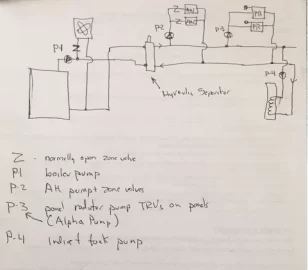 P-1
Z
P-2
Z
AH
Z
AH
P-3
PR
PR
P-4
Hydraulic Separator
Z - normally open zone valve
P1 boiler pump
P-2 AH pump + zone valves
P-3 panel radiator pump TRVs on panels
(Alpha Pump)
P-4 Indirect tank pump